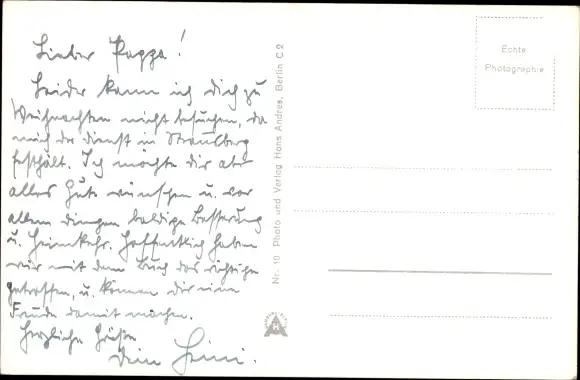 Lieber Pappa!
Leider kann ich dich zu
Weihnachten nicht besuchen, da
mich der dienst in Strausberg
festhält. Ich möchte dir aber
alles Gute wünschen u. vor
allem dingen baldige Besserung
u. Heimkehr. Hoffentlich haben
wir mit dem Buch das richtige
getroffen, u. können dir eine
Freude damit machen.
Herzliche Grüße
Dein Heini.
Nr. 10 Photo und Verlag Hans Andres, Berlin C 2
Echte
Photographie